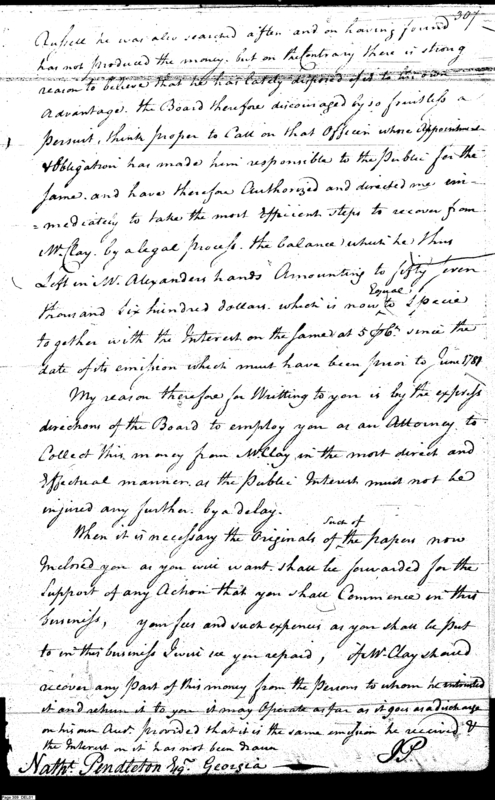 307
Russell he was also searched after and on having found
has not produced the money. but on the Contrary there is strong
reason to believe that he has lately disposed of it to his own
Advantage. the Board therefore discouraged by so fruitless a
persuit, think proper to Call on that Officer whose Appointment
& Obligation has made him responsible to the Public for the
same. and have therefore Authorized and directed me im-
=mediately to take the most Efficient steps to recover from
Mr. Clay. by a legal process. the balance which he thus
Left in Mr. Alexanders hands Amounting to fifty seven
thousand Six hundred dollars. which is now Equal to Specie
together with the Interest on the same at 5 since the
date of its emission which must have been prior to June 1781
My reason therefore for Writting to you is by the express
directions of the Board to employ you as an Attorney to
Collect this money from Mr. Clay in the most direct and
Effectual manner. as the Public Interest must not be
injured any further. by a delay.
When it is necessary the Originals of Such of the papers now
Inclosed you as you will want. shall be forwarded for the
Support of any Action that you shall Commence in this
business, your fees and such expences as you shall be put
to in this business I will see you repaid, if Mr. Clay should
recover any Part of this money from the Persons to whom he intrusted
it and return it to you it may Operate as far as it goes as a discharge
on his own Acct. provided that it is the same emission he received &
the Interest on it has not been drawn
JP
Nathl. Pendleton Esqr. Georgia